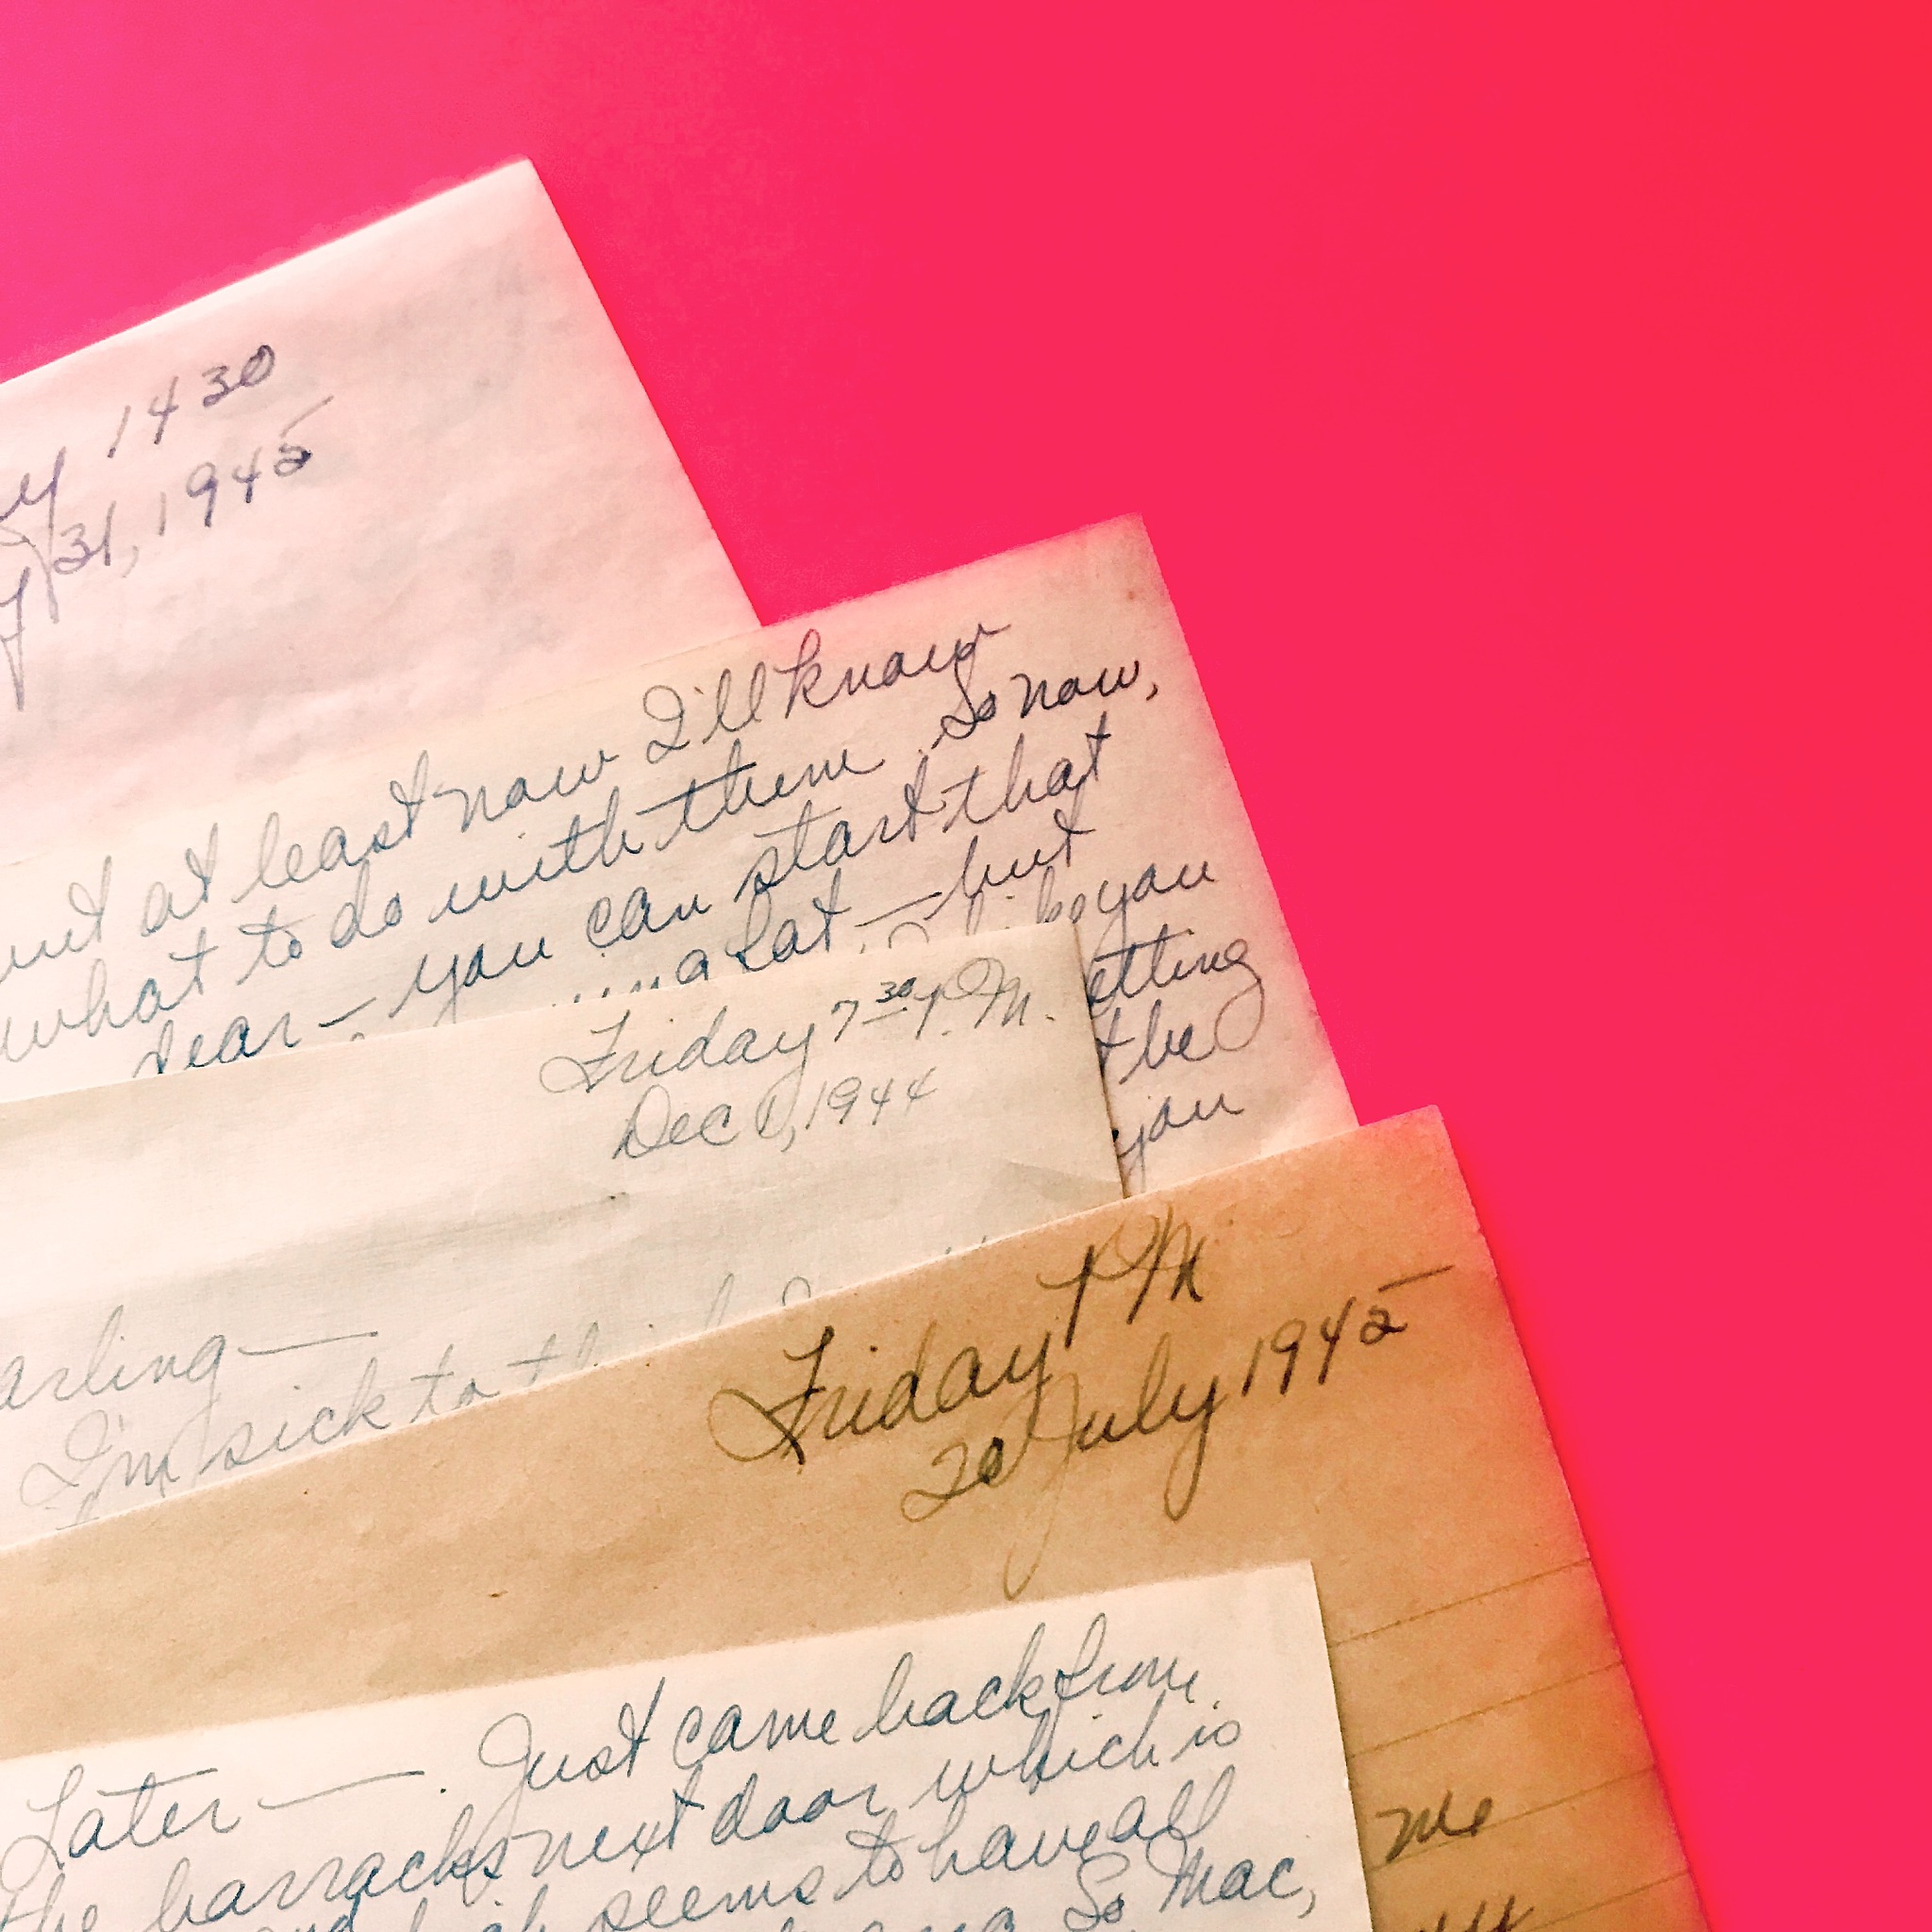 1430
31, 1945
at least now I'll know
what to do with them. So now,
dear — you can start that
a lot — but
you
etting
the
you
Friday 7 30 P.M.
Dec 1, 1944
arling —
I'm sick to
Friday PM
20 July 1945
me
Later — . Just came back from
the barracks next door which is
seems to have all
So Mac,